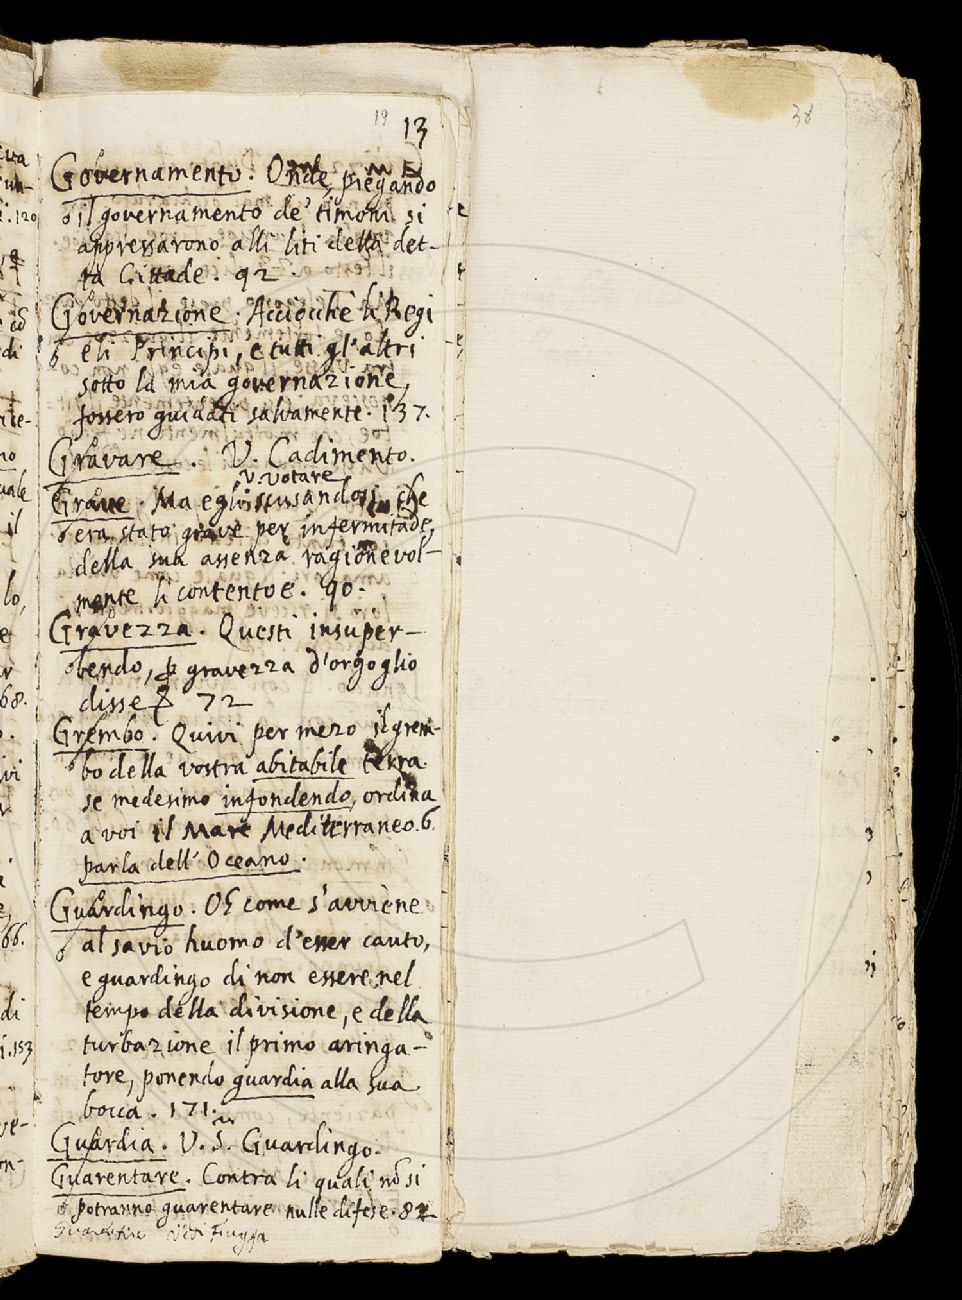 19 13
38
Governamento. Onde, piegando
il governamento de' timoni si
appressarono alli liti della det-
ta Cittade. 92.
Governazione. Acciocche li Regi
e li Principi, e tutti gl'altri
sotto la mia governazione,
fossero guidati salvamente. 137.
Gravare. V. Cadimento.
V. votare
Grave. Ma egli scusandosi, che
era stato grave per infermitade,
della sua assenza ragionevol-
mente li contentoe. 90.
Gravezza. Questi insuper-
bendo, ꝑ gravezza d'orgoglio
disse 72
Grembo. Quivi per mezo il grem-
bo della vostra abitabile terra
se medesimo infondendo, ordina
a voi il Mare Mediterraneo. 6.
parla dell'Oceano.
Guardingo. Oh come s'avviene
al savio huomo d'esser cauto,
e guardingo di non essere nel
tempo della divisione, e della
turbazione il primo aringa-
tore, ponendo guardia alla sua
bocca. 171.
Guardia. V. S. Guardingo.
Guarentare. Contra li quali nō si
potranno guarentare nulle difese. 82